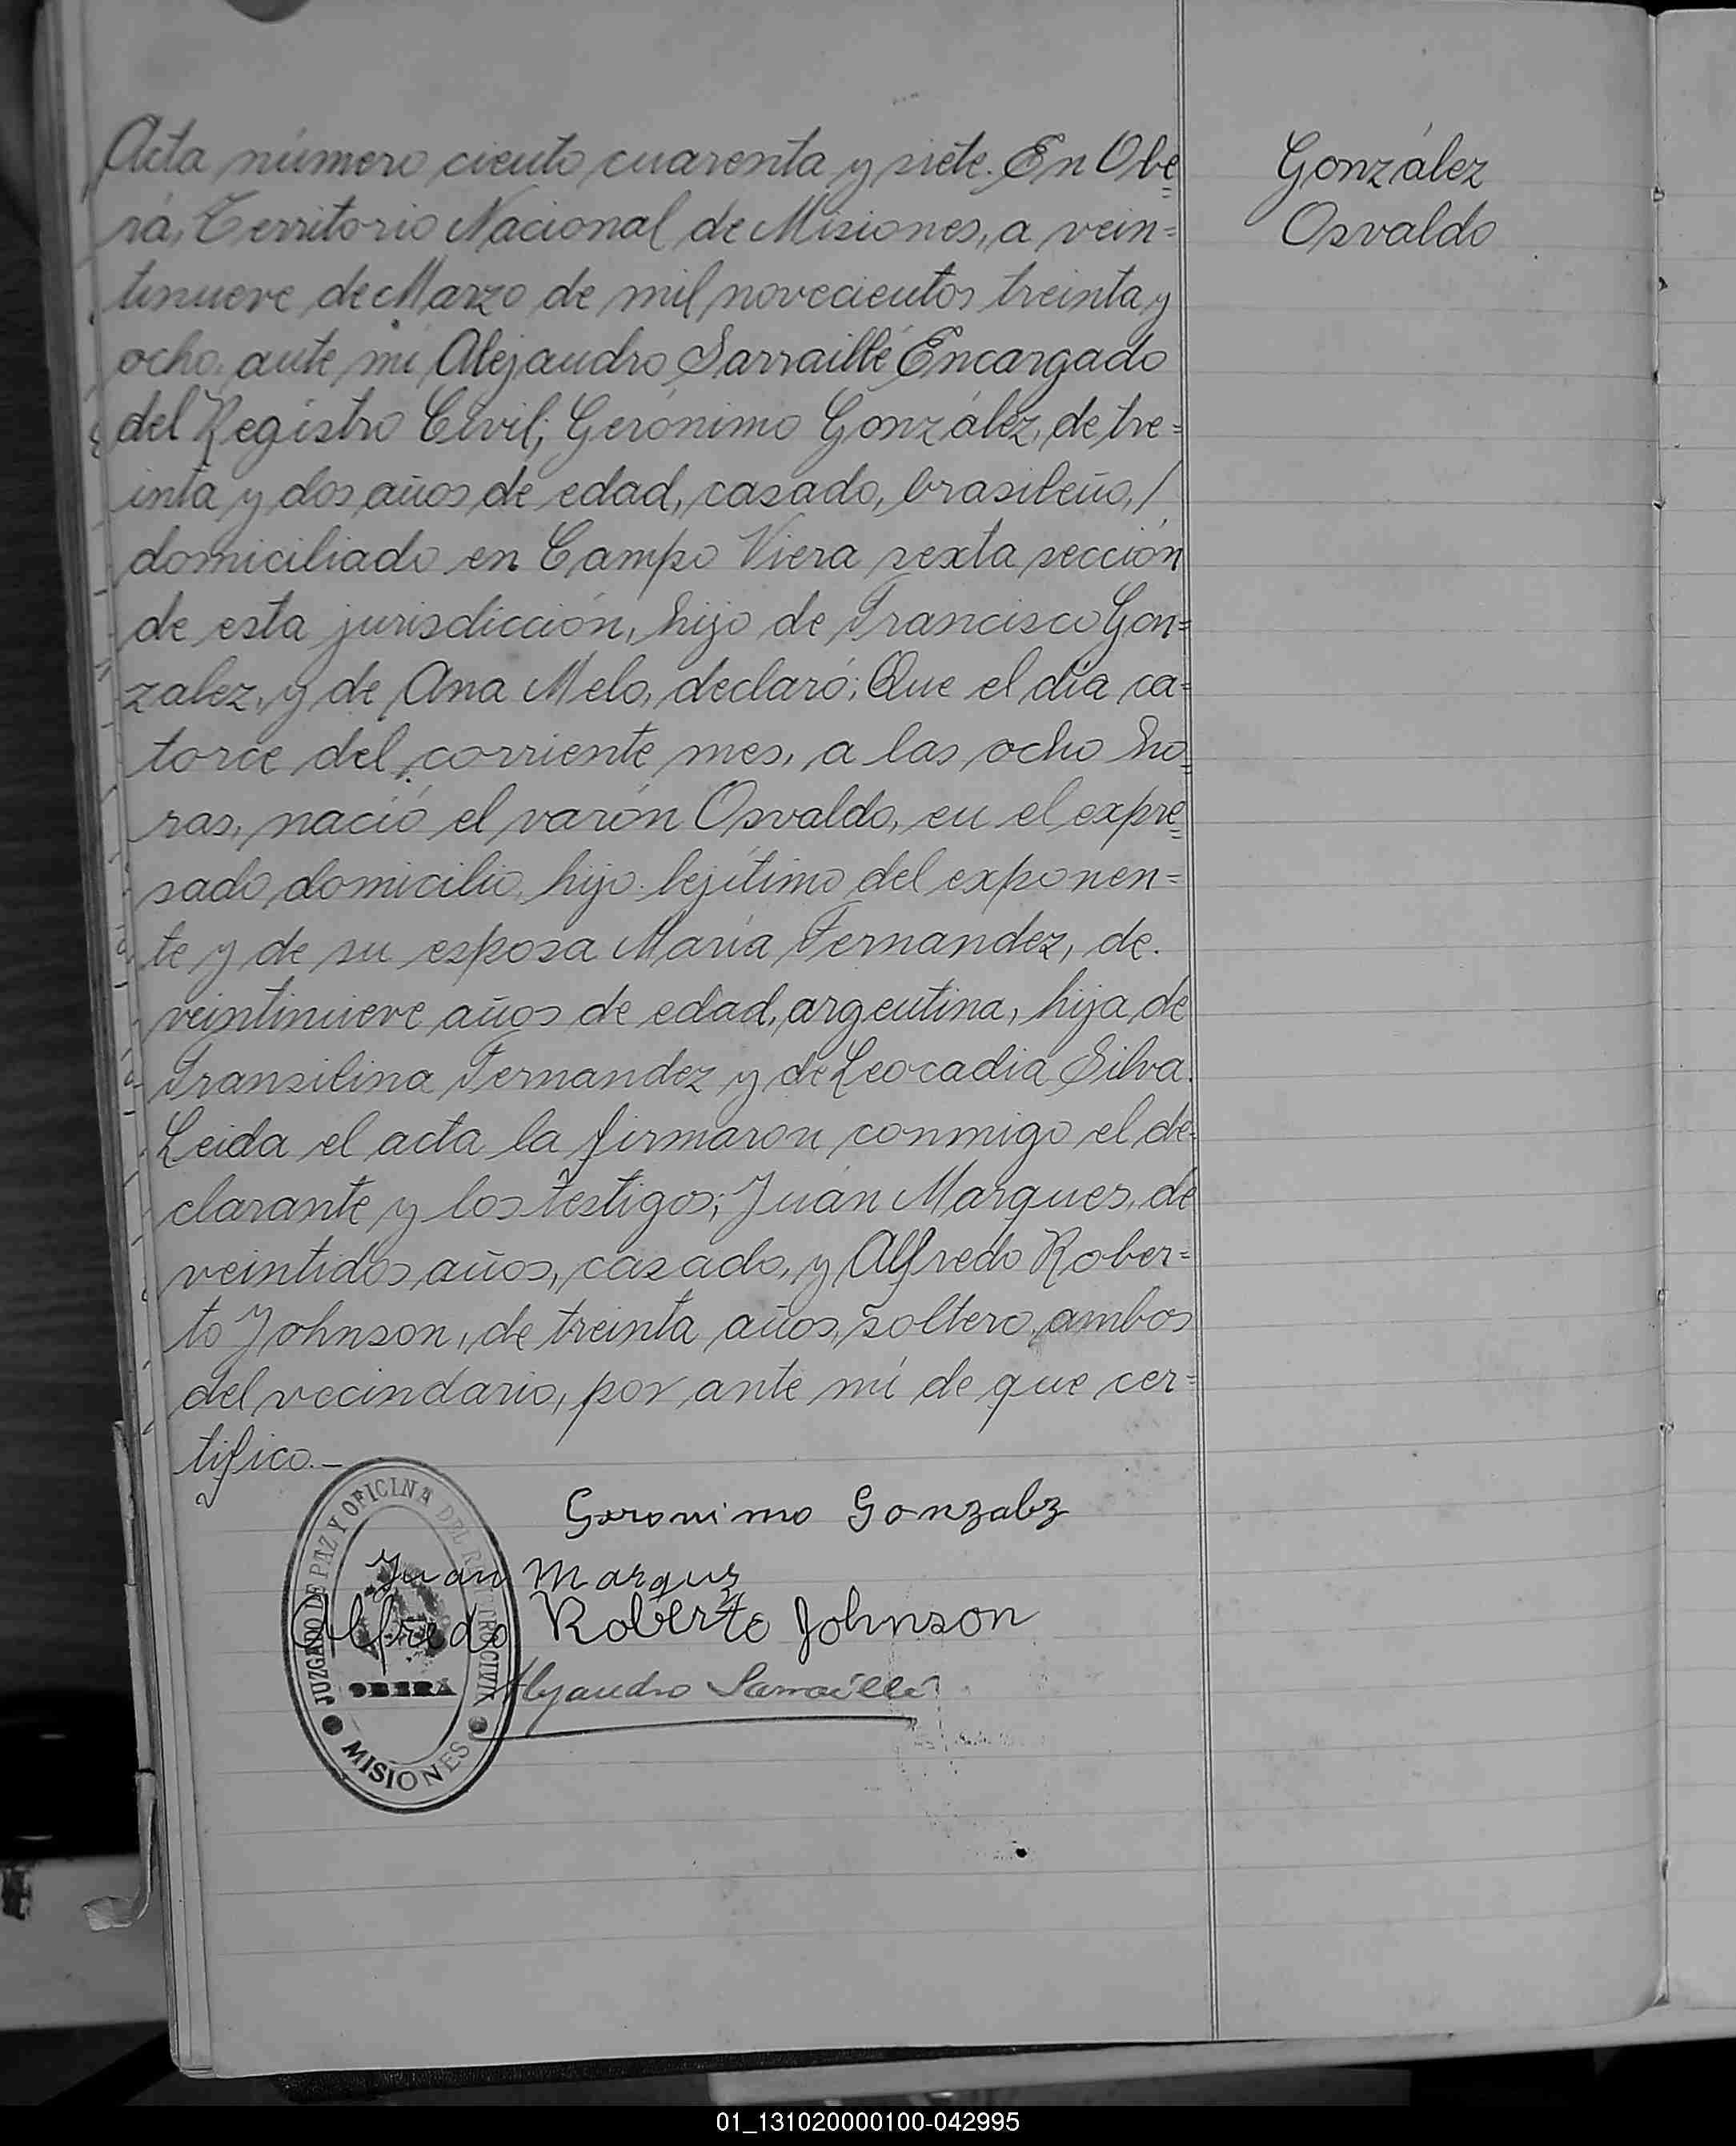 Acta número ciento cuarenta y siete. En Obe=
rá, Territorio Nacional de Misiones, a vein=
tinueve de Marzo de mil novecientos treinta y
ocho, ante mi Alejandro Sarraillé Encargado
del Registro Civil; Gerónimo González, de tre=
inta y dos años de edad, casado, brasileño, /
domiciliado en Campo Viera sexta sección
de esta jurisdicción, hijo de Francisco Gon=
zalez, y de Ana Melo, declaró; Que el día ca=
torce del corriente mes, a las ocho ho=
ras, nació el varón Osvaldo, en el expre=
sado domicilio, hijo lejítimo del exponen=
te y de su esposa María Fernandez, de
veintinueve años de edad, argentina, hija de
Fransilina Fernandez y de Leocadia Silva.
Leida el acta la firmaron conmigo el de=
clarante y los testigos; Juán Marques, de
veintidos años, casado, y Alfredo Rober=
to Johnson, de treinta años, soltero, ambos
del vecindario, por ante mí de que cer=
tifico.—
González
Osvaldo
Geronimo Gonzalz
Juan Marquz
Alfredo Roberto Johnson
Alejandro Sarraillé
JUZGADO DE PAZ Y OFICINA DEL REGISTRO CIVIL
OBERÁ
MISIONES
01_131020000100-042995